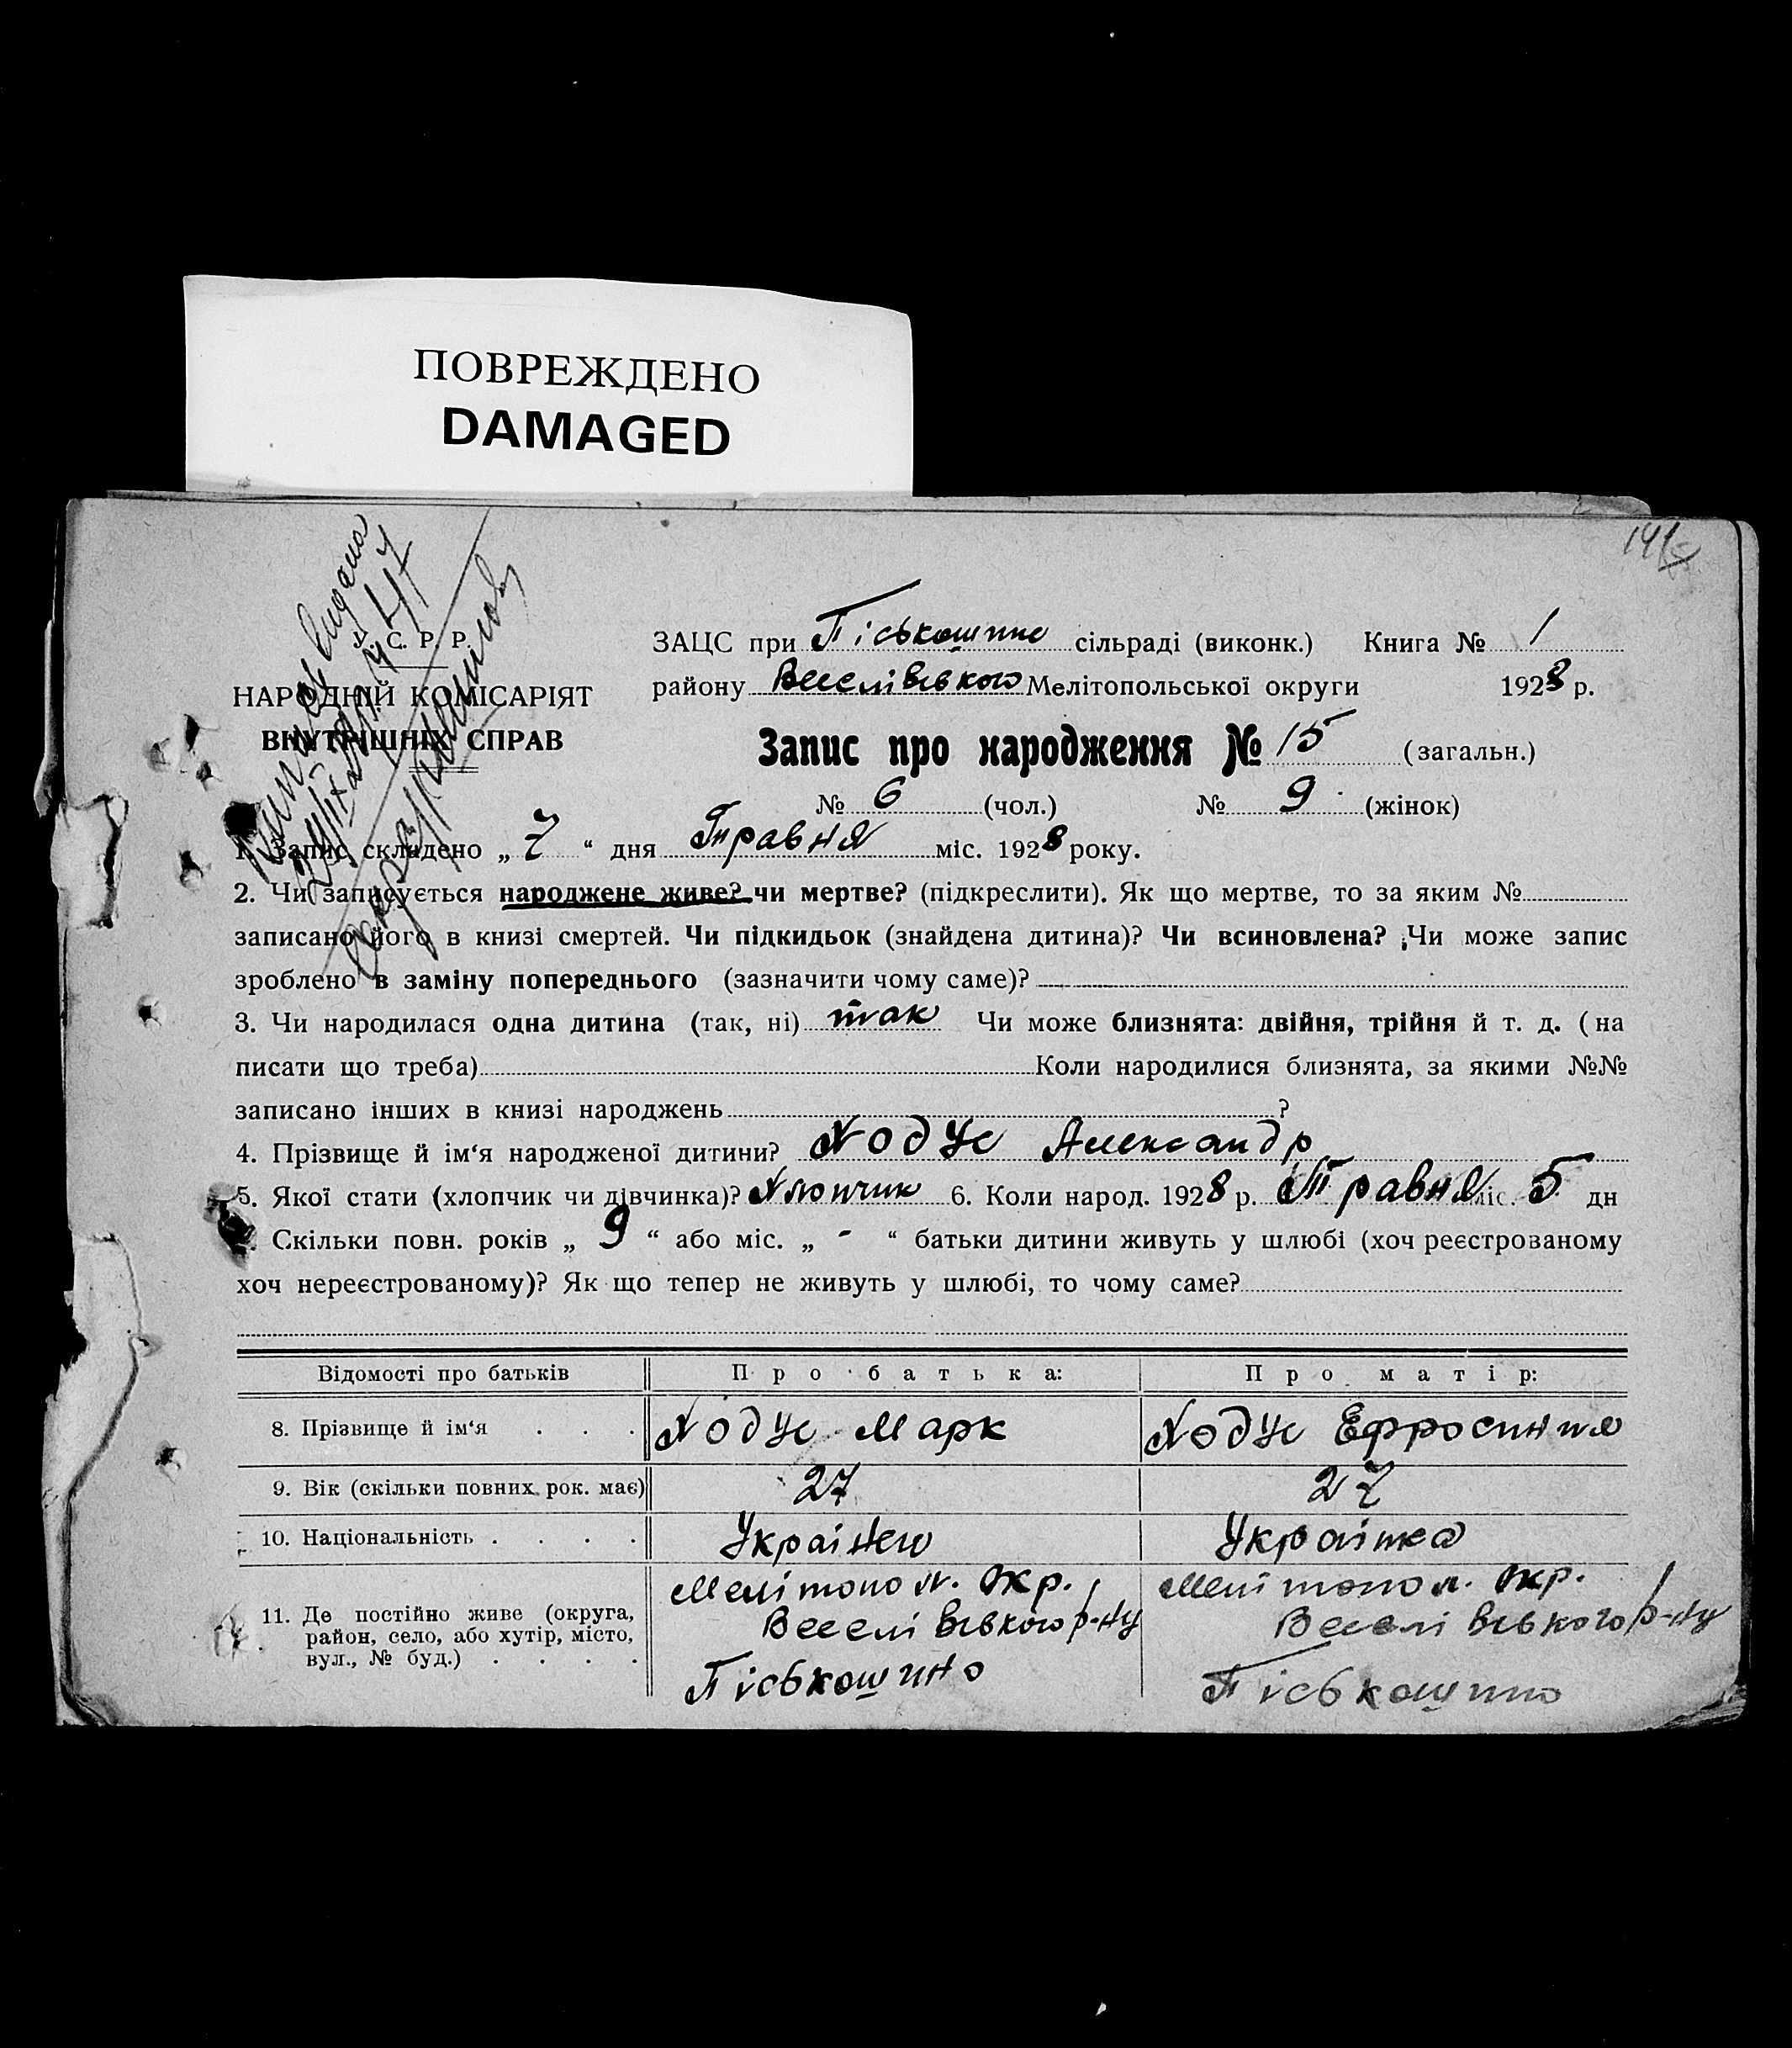 ПОВРЕЖДЕНО
DAMAGED
У. С. Р. Р.
НАРОДНІЙ КОМІСАРІЯТ
ВНУТРІШНІХ СПРАВ
ЗАЦС при Піськошине сільраді (виконк.) Книга № 1
району Веселівського Мелітопольської округи 1928 р.
Запис про народження № 15 (загальн.)
№ 6 (чол.) № 9 (жінок)
1. Запис складено „ 7 “ дня Травня міс. 1928 року.
2. Чи записується народжене живе? чи мертве? (підкреслити). Як що мертве, то за яким №
записано його в книзі смертей. Чи підкидьок (знайдена дитина)? Чи всиновлена? Чи може запис
зроблено в заміну попереднього (зазначити чому саме)?
3. Чи народилася одна дитина (так, ні) так Чи може близнята: двійня, трійня й т. д. (на
писати що треба) Коли народилися близнята, за якими №№
записано інших в книзі народжень ?
4. Прізвище й ім‘я народженої дитини? Ходус Александр
5. Якої стати (хлопчик чи дівчинка)? Хлопчик 6. Коли народ. 1928 р. Травня міс. 5 дн
Скільки повн. років „ 9 “ або міс. „ - “ батьки дитини живуть у шлюбі (хоч реєстрованому
хоч нереєстрованому)? Як що тепер не живуть у шлюбі, то чому саме?
Відомості про батьків Про батька: Про матір:
8. Прізвище й ім‘я . . . Ходус Марк Ходус Ефросиния
9. Вік (скільки повних рок. має) 27 27
10. Національність . . . . Українец Українка
11. Де постійно живе (округа, район, село, або хутір, місто, вул., № буд.) . . . .
Мелітопол. Окр. Мелітопол. Окр.
Веселівського р-ну Веселівського р-ну
Піськошино Піськошино